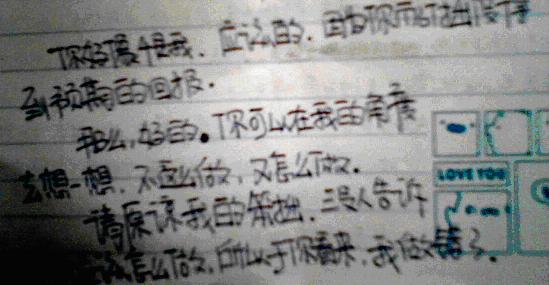 你好像怪我.应该的.因为你而付出没有得
到预期的回报.
那么,好的。你可以在我的角度
去想一想.不这么做,又怎么做.
请原谅我的笨拙.三没人告诉
怎么做,所以于你看来,我做错了.
LOVE YOU